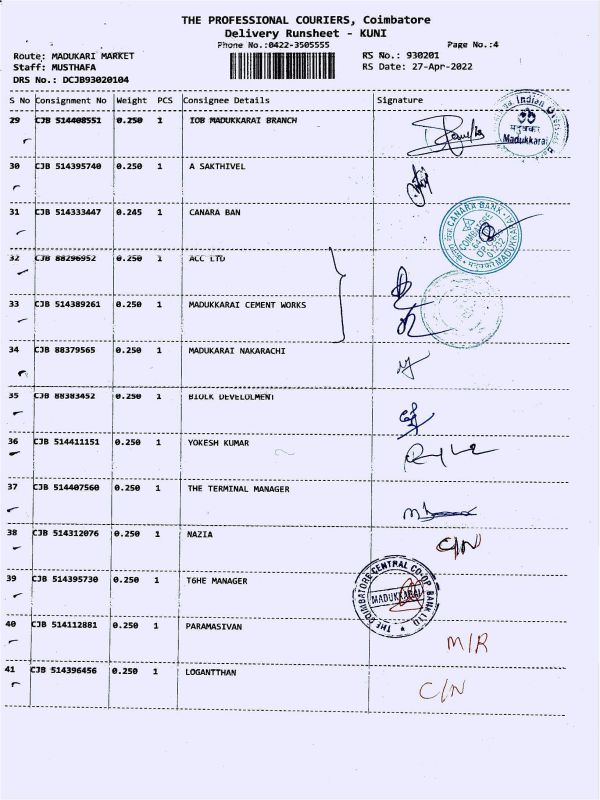 THE PROFESSIONAL COURIERS, Coimbatore
Delivery Runsheet - KUNI
Phone No.:0422-3505555 Page No.:4
Route: MADUKARI MARKET RS No.: 930201
Staff: MUSTHAFA RS Date: 27-Apr-2022
DRS No.: DCJB93020104
S No Consignment No Weight PCS Consignee Details Signature
29 CJB 514408551 0.250 1 IOB MADUKKARAI BRANCH
Indian
मदुक्करै
Madukkarai
30 CJB 514395740 0.250 1 A SAKTHIVEL
31 CJB 514333447 0.245 1 CANARA BAN
CANARA BANK
COIMBATORE
MADUKKA
32 CJB 88296952 0.250 1 ACC LTD
33 CJB 514389261 0.250 1 MADUKKARAI CEMENT WORKS
34 CJB 88379565 0.250 1 MADUKARAI NAKARACHI
35 CJB 88383452 0.250 1 BLOCK DEVELOLMENT
36 CJB 514411151 0.250 1 YOKESH KUMAR
37 CJB 514407560 0.250 1 THE TERMINAL MANAGER
38 CJB 514312076 0.250 1 NAZIA C/N
39 CJB 514395730 0.250 1 T6HE MANAGER
THE COIMBATORE CENTRAL CO-OP BANK LTD
MADUKKARAI
40 CJB 514112881 0.250 1 PARAMASIVAN M/R
41 CJB 514396456 0.250 1 LOGANTTHAN C/N